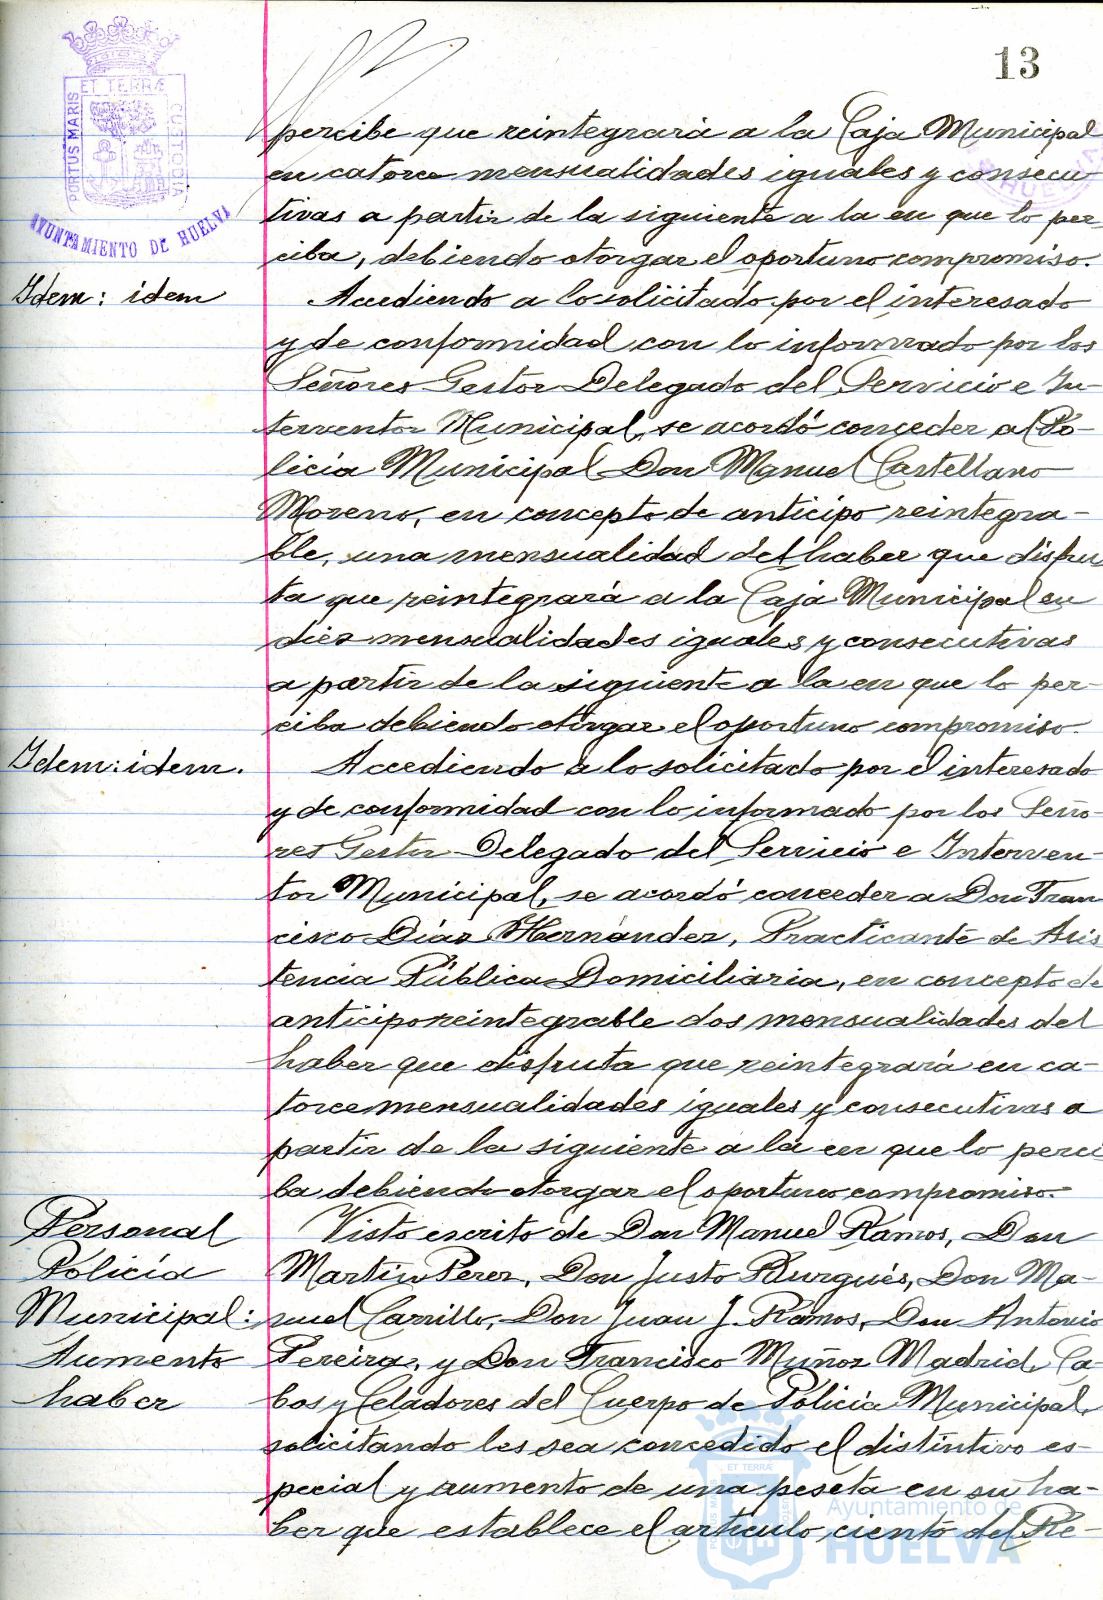 13
PORTUS MARIS ET TERRÆ CUSTODIA
AYUNTAMIENTO DE HUELVA
HUELVA
percibe que reintegrará a la Caja Municipal
en catorce mensualidades iguales y consecu
tivas a partir de la siguiente a la en que lo per-
ciba, debiendo otorgar el oportuno compromiso.
Idem: idem
Accediendo a lo solicitado por el interesado
y de conformidad con lo informado por los
Señores Gestor Delegado del Servicio e In-
terventor Municipal, se acordó conceder al Po-
licia Municipal Don Manuel Castellano
Moreno, en concepto de anticipo reintegra-
ble, una mensualidad del haber que disfru
ta que reintegrará a la Caja Municipal en
diez mensualidades iguales y consecutivas
a partir de la siguiente a la en que lo per-
ciba debiendo otorgar el oportuno compromiso.
Idem: idem.
Accediendo a lo solicitado por el interesado
y de conformidad con lo informado por los Seño-
res Gestor Delegado del Servicio e Interven-
tor Municipal, se acordó conceder a Don Fran
cisco Díaz Hernández, Practicante de Asis
tencia Pública Domiciliaria, en concepto de
anticipo reintegrable dos mensualidades del
haber que disfruta que reintegrará en ca-
torce mensualidades iguales y consecutivas a
partir de la siguiente a la en que lo perci
ba debiendo otorgar el oportuno compromiso.
Personal
Policía
Municipal:
Aumento
haber
Visto escrito de Don Manuel Ramos, Don
Martin Perez, Don Justo Burgués, Don Ma-
nuel Carrillo, Don Juan J. Ramos, Don Antonio
Pereira, y Don Francisco Muñoz Madrid, Ca-
bos y Celadores del Cuerpo de Policía Municipal,
solicitando les sea concedido el distintivo es-
pecial y aumento de una peseta en su ha-
ber que establece el articulo ciento del Re-
Ayuntamiento de
HUELVA